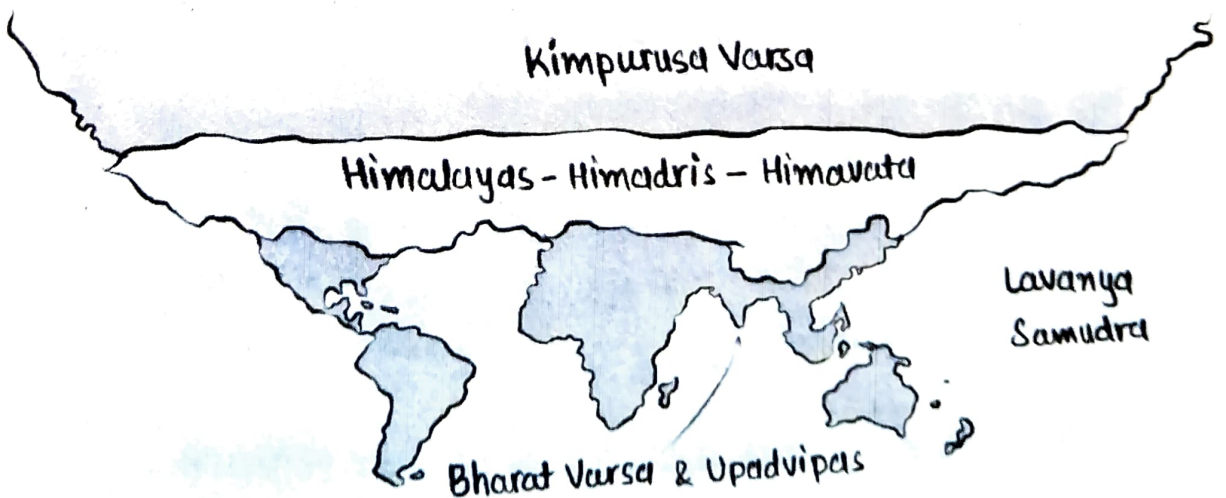 Kimpurusa Varsa
Himalayas - Himadris - Himavata
Lavanya
Samudra
Bharat Varsa & Upadvipas